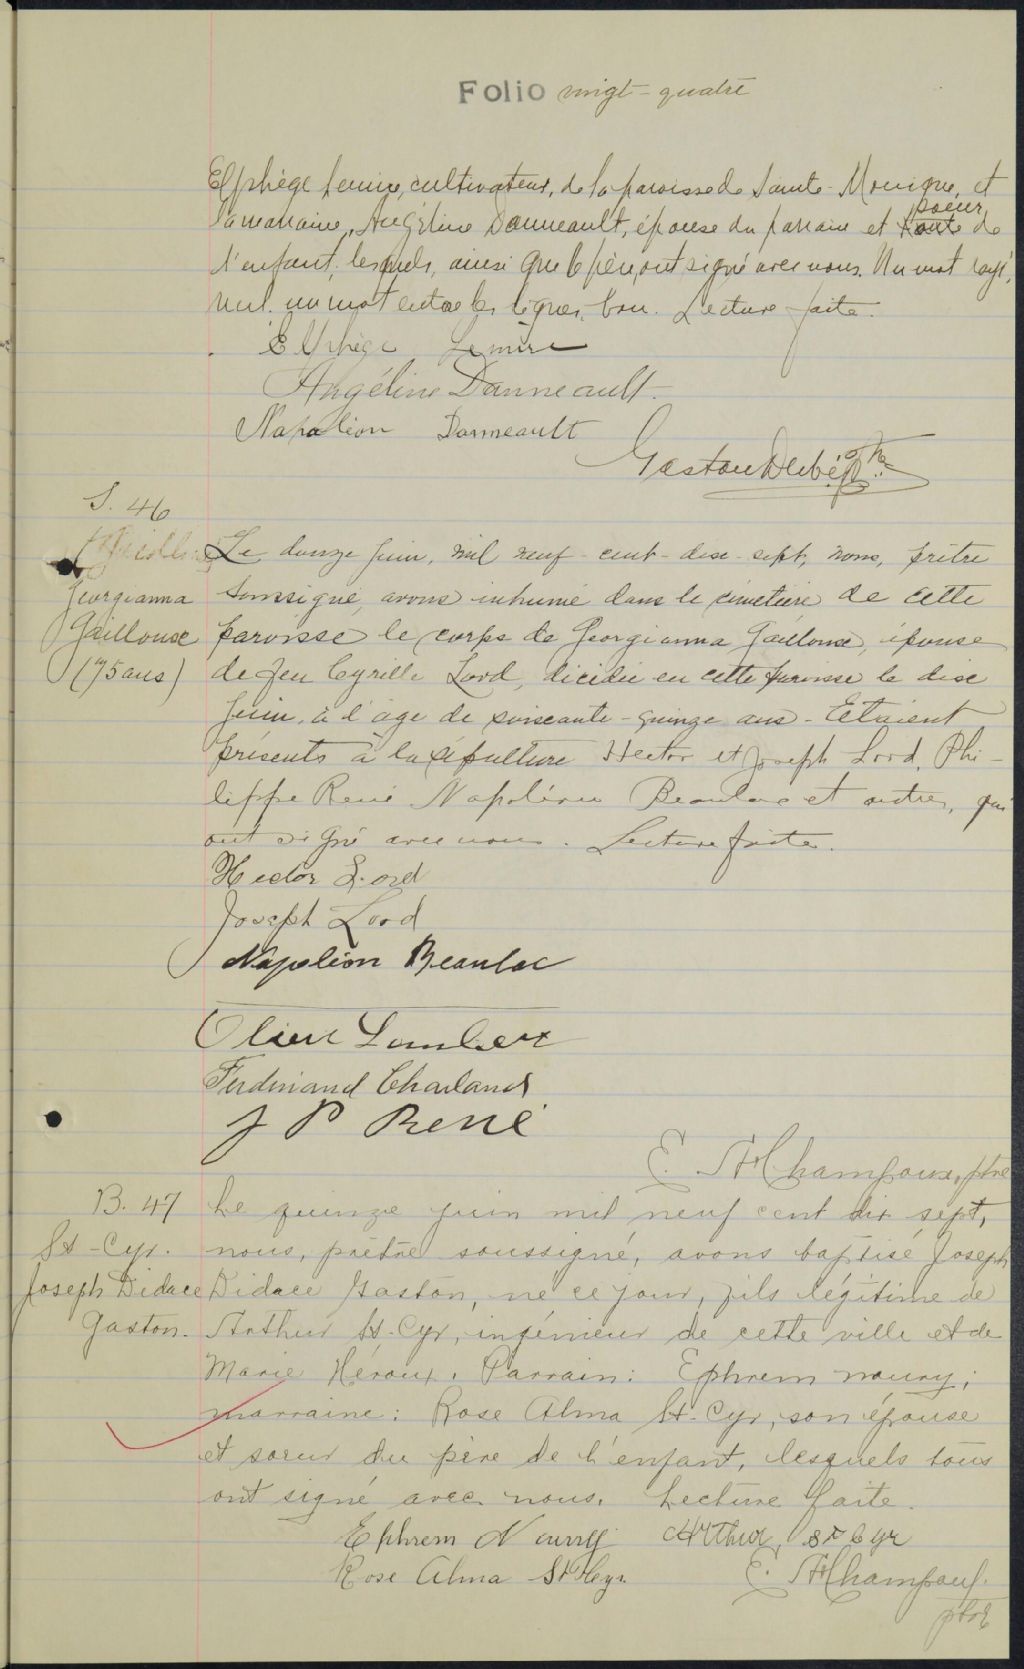 Folio vingt-quatre
Elphège Lemire, cultivateur, de la paroisse de Sainte-Monique, et
soeur
la marraine, Angéline Danneault, épouse du parrain et tante de
l'enfant, lesquels, ainsi que le père, ont signé avec nous. Un mot rayé,
nul. un mot entre les lignes, bon. Lecture faite.
Elphège Lemire
Angéline Danneault.
Napoléon Danneault
Gaston
S. 46
Le douze juin, mil neuf-cent-dix-sept, nous, prêtre
Georgianna soussigné, avons inhumé dans le cimetière de cette
Gaillouse paroisse le corps de Georgianna Gaillouse, épouse
(75 ans) de feu Cyrille Lord, décédée en cette paroisse le dix
juin, à l'âge de soixante-quinze ans - Etaient
présents à la sépulture Hector et Joseph Lord, Phi-
lippe René Napoléon Beaulac et autres, qui
ont signé avec nous. Lecture faite.
Hector Lord
Joseph Lord
Napoléon Beaulac
Lambert
Ferdinand Charland
J P René
E. Champoux, ptre
B. 47 Le quinze juin mil neuf cent dix sept,
St-Cyr. nous, prêtre soussigné, avons baptisé Joseph
Joseph Didace Didace Gaston, né ce jour, fils légitime de
Gaston. Arthur St-Cyr, ingénieur de cette ville et de
Marie Héroux. Parrain: Ephrem Noury;
marraine: Rose Alma St-Cyr, son épouse
et soeur du père de l'enfant, lesquels tous
ont signé avec nous. Lecture faite.
Ephrem Noury Arthur St Cyr
Rose Alma St Cyr. E. Champoux.
ptre